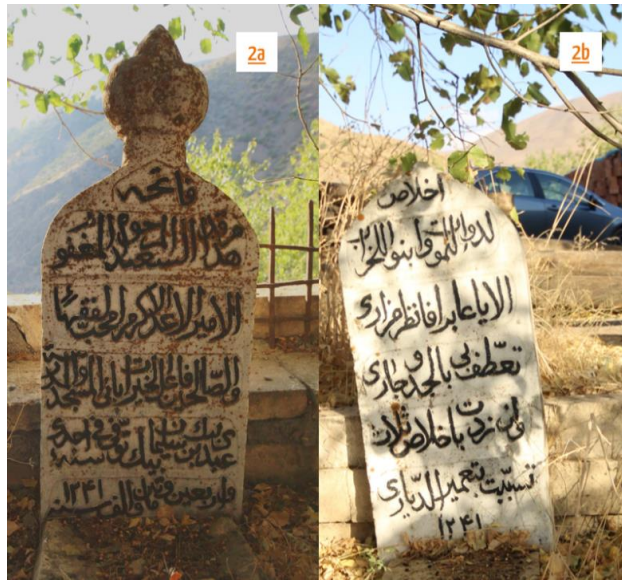 2a
فاتحه
مرقد السعيد المرحوم المغفور
الامير الاعدل الاكرم المحب للفقهاء
والصالحين فاعل الخيرات بانى المسجد
عبدى بيك بن سليمان بيك توفى فى احدى
واربعين ومائتان والف سنه ١٢٤١
2b
اخلاص
لدوا للموت وابنوا للخراب
الا يا عابرا فانظر مزارى
تعطف بى بالجد وجارى
وان زدت باخلاص ثلاث
تسببت بتعمير الديارى
١٢٤١